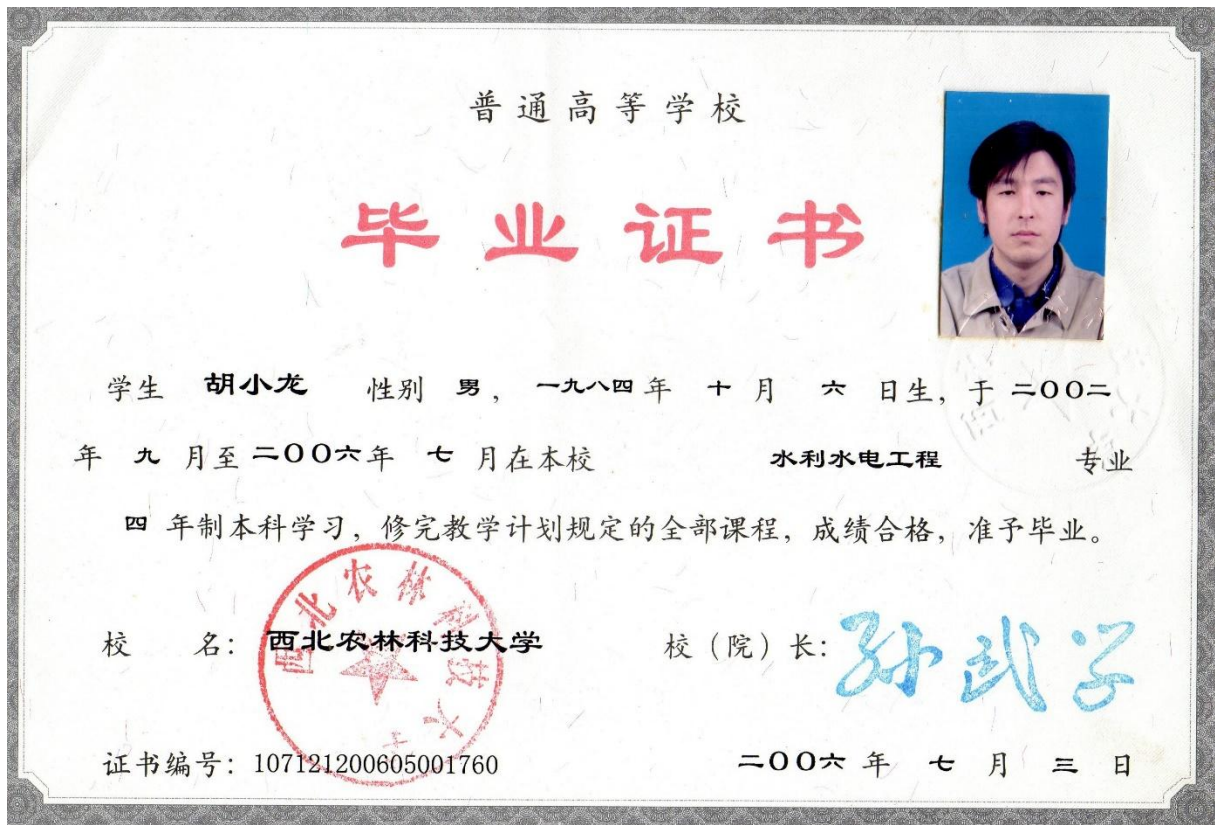 普通高等学校
毕业证书
学生 胡小龙 性别 男，一九八四年 十月 六 日生，于二〇〇二
年 九 月至二〇〇六年 七 月在本校 水利水电工程 专业
四 年制本科学习，修完教学计划规定的全部课程，成绩合格，准予毕业。
西北农林科技大学
校 名：西北农林科技大学 校（院）长：孙武学
证书编号：107121200605001760 二〇〇六年 七 月 三 日